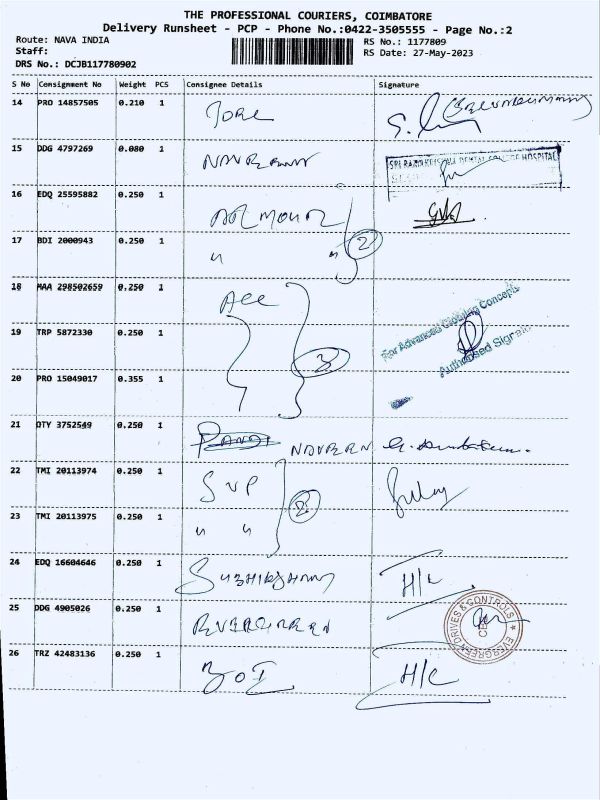 THE PROFESSIONAL COURIERS, COIMBATORE
Delivery Runsheet - PCP - Phone No.:0422-3505555 - Page No.:2
Route: NAVA INDIA
RS No.: 1177809
Staff:
RS Date: 27-May-2023
DRS No.: DCJB117780902
S No Consignment No Weight PCS Consignee Details Signature
14 PRO 14857505 0.210 1
15 DDG 4797269 0.080 1 NAVEEN
SRI RAMAKRISHNA DENTAL COLLEGE HOSPITAL
16 EDQ 25595882 0.250 1
17 BDI 2000943 0.250 1 " " 2
18 MAA 298502659 0.250 1 Ace
For Advanced Clothing Concepts
19 TRP 5872330 0.250 1 3
Authorised Signato
20 PRO 15049017 0.355 1
21 OTY 3752549 0.250 1 NAVEEN
22 TMI 20113974 0.250 1 SVP 2
23 TMI 20113975 0.250 1 " "
24 EDQ 16604646 0.250 1 H/C
25 DDG 4905026 0.250 1 EVERGREEN
EVERGREEN DRIVES & CONTROLS
CBE
26 TRZ 42483136 0.250 1 BOI H/C